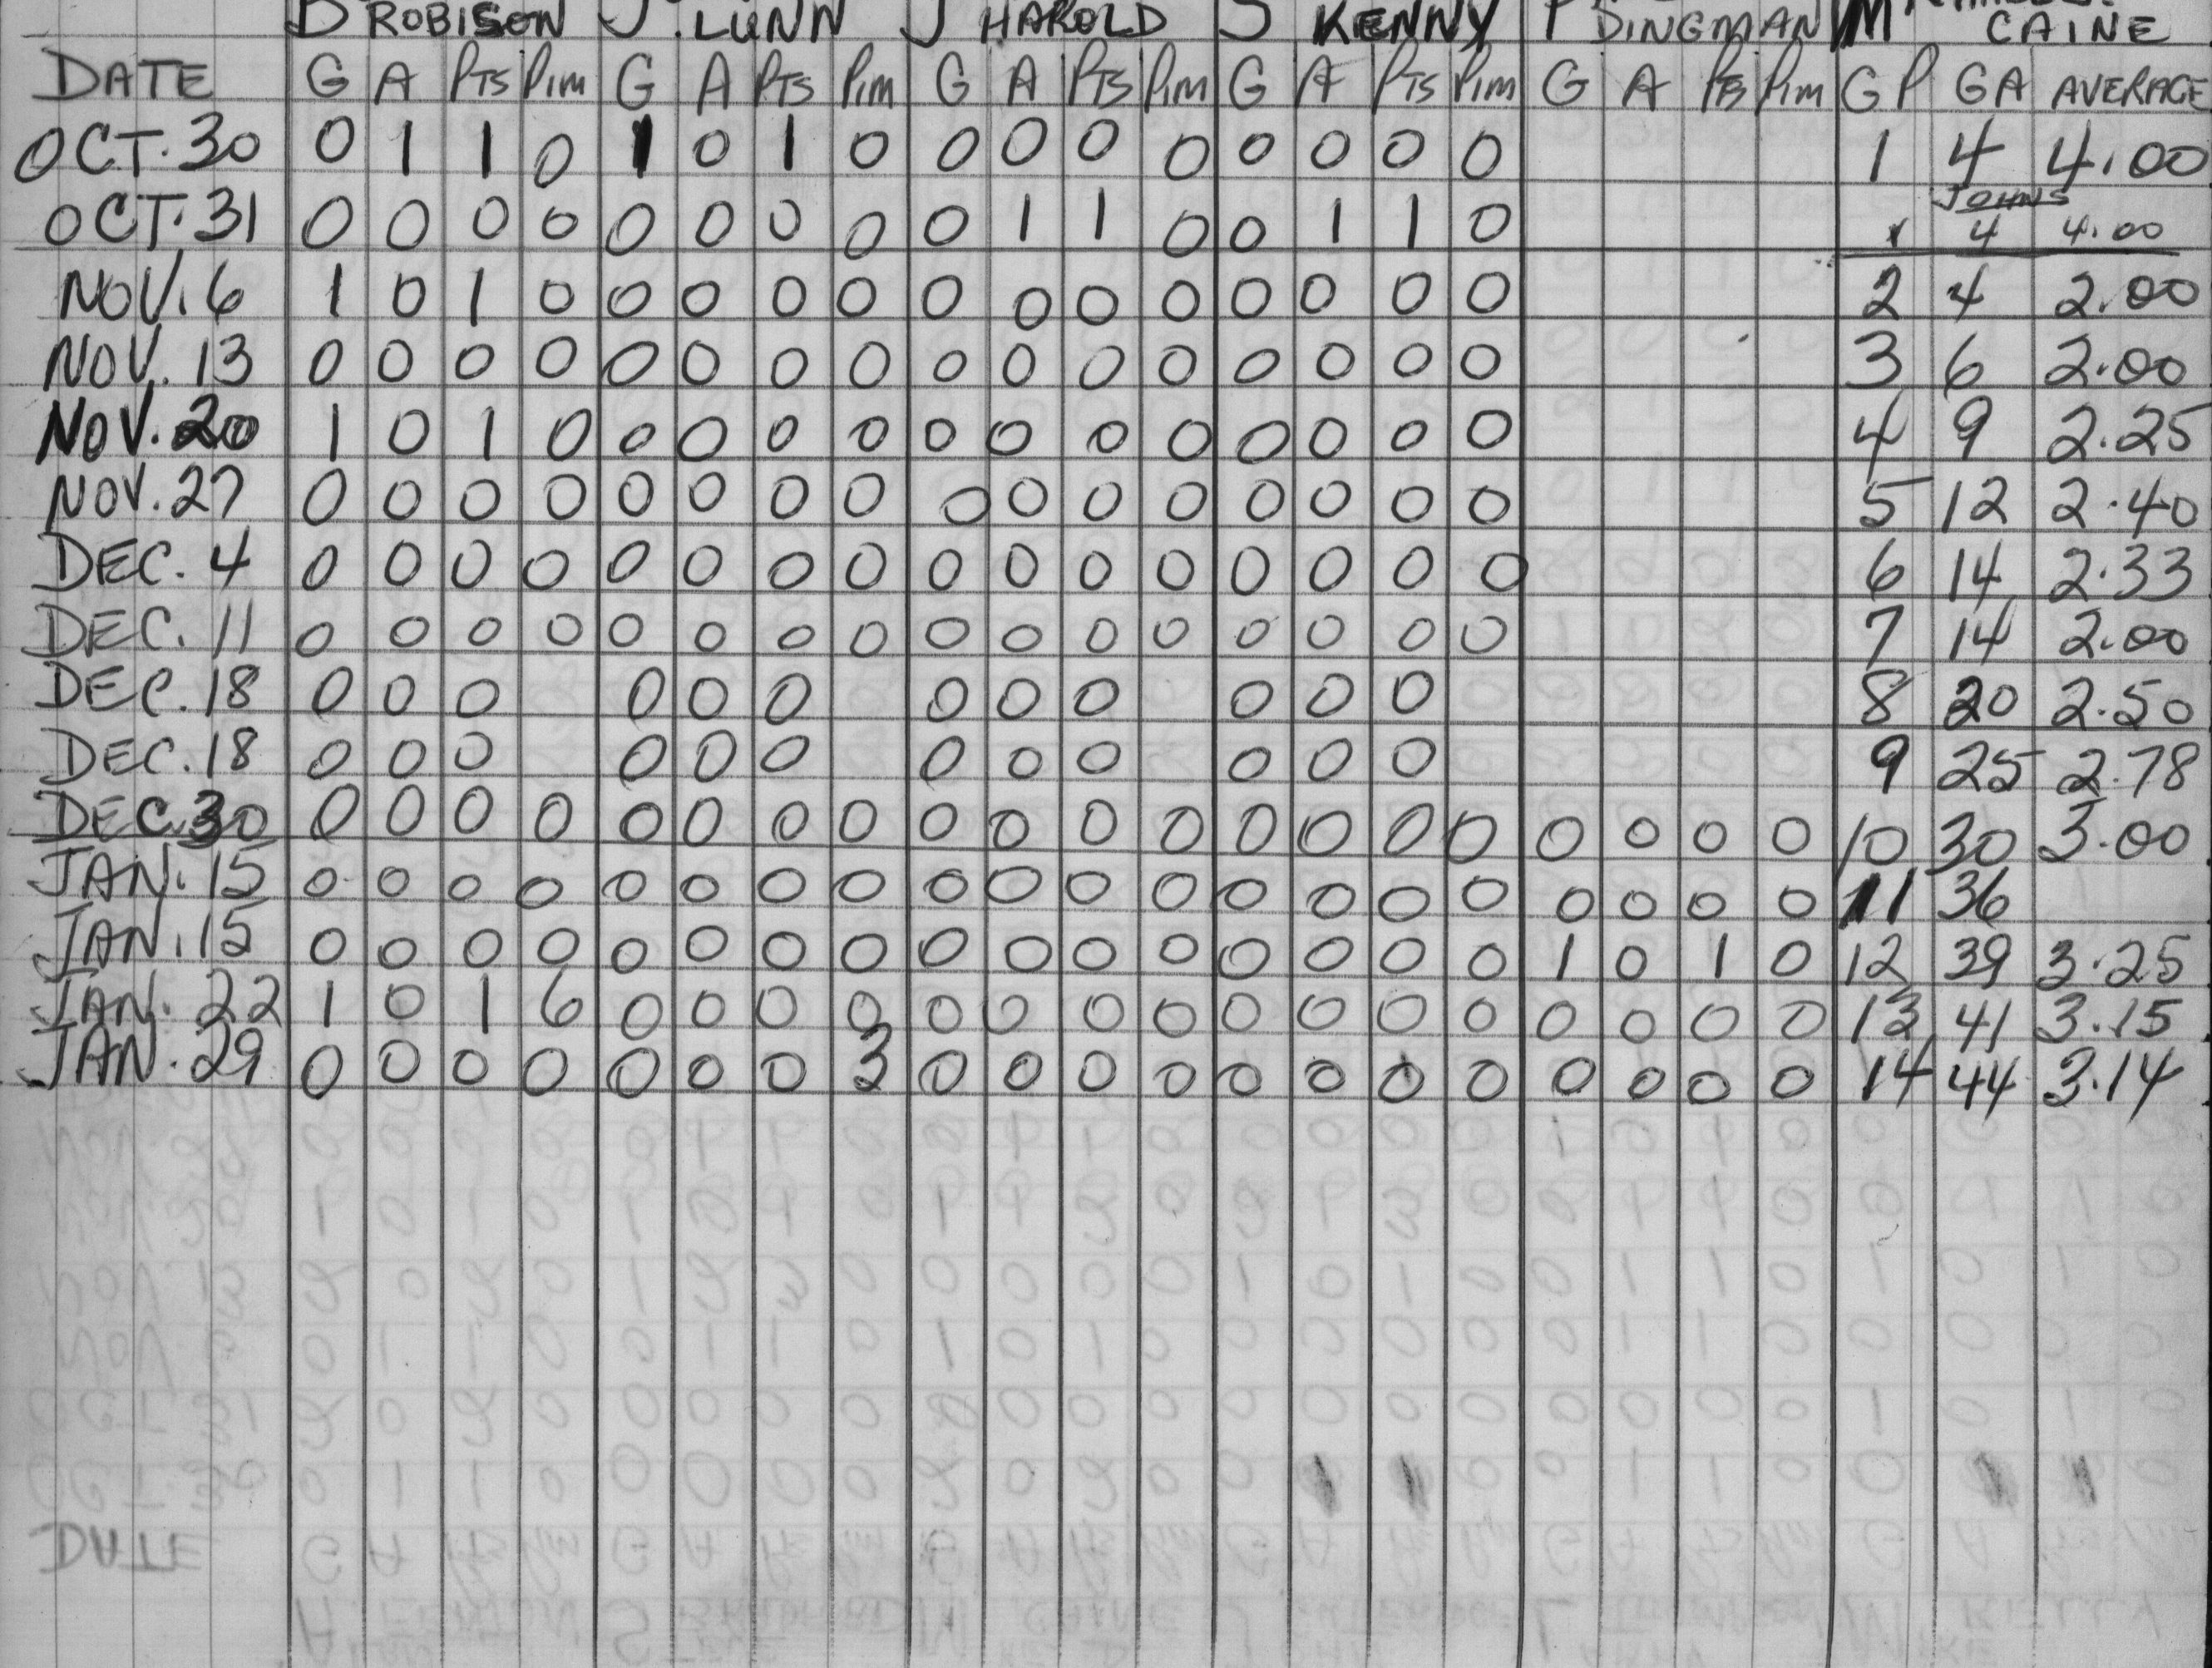 D ROBISON J. LUNN J HAROLD S KENNY P DINGMAN M CAINE
DATE G A PTS PIM G A PTS PIM G A PTS PIM G A PTS PIM G A PTS PIM GP GA AVERAGE
OCT. 30 0 1 1 0 1 0 1 0 0 0 0 0 0 0 0 0 1 4 4.00
JOHNS
OCT. 31 0 0 0 0 0 0 0 0 0 1 1 0 0 1 1 0 4 4.00
NOV. 6 1 0 1 0 0 0 0 0 0 0 0 0 0 0 0 0 2 4 2.00
NOV. 13 0 0 0 0 0 0 0 0 0 0 0 0 0 0 0 0 3 6 2.00
NOV. 20 1 0 1 0 0 0 0 0 0 0 0 0 0 0 0 0 4 9 2.25
NOV. 27 0 0 0 0 0 0 0 0 0 0 0 0 0 0 0 0 5 12 2.40
DEC. 4 0 0 0 0 0 0 0 0 0 0 0 0 0 0 0 0 6 14 2.33
DEC. 11 0 0 0 0 0 0 0 0 0 0 0 0 0 0 0 0 7 14 2.00
DEC. 18 0 0 0 0 0 0 0 0 0 0 0 0 8 20 2.50
DEC. 18 0 0 0 0 0 0 0 0 0 0 0 0 9 25 2.78
DEC. 30 0 0 0 0 0 0 0 0 0 0 0 0 0 0 0 0 0 0 0 0 10 30 3.00
JAN. 15 0 0 0 0 0 0 0 0 0 0 0 0 0 0 0 0 0 0 0 0 11 36
JAN. 15 0 0 0 0 0 0 0 0 0 0 0 0 0 0 0 0 1 0 1 0 12 39 3.25
JAN. 22 1 0 1 6 0 0 0 0 0 0 0 0 0 0 0 0 0 0 0 0 13 41 3.15
JAN. 29 0 0 0 0 0 0 0 3 0 0 0 0 0 0 0 0 0 0 0 0 14 44 3.14